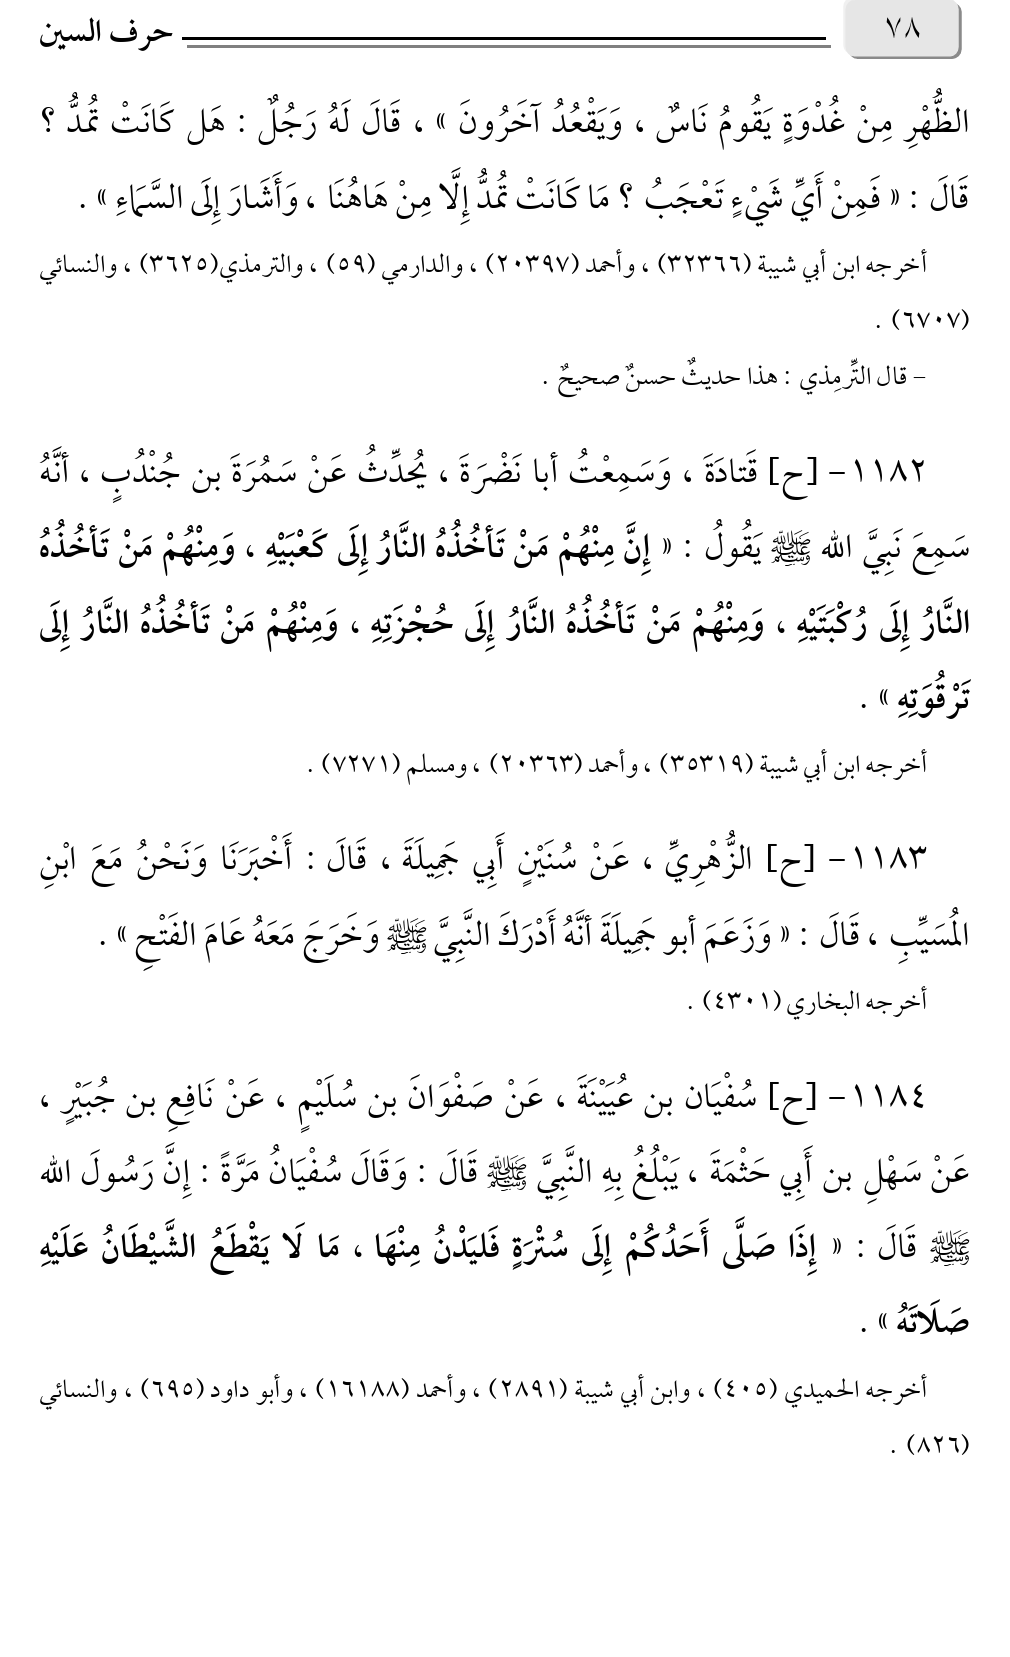 ٧٨
حرف السين
الظُّهْرِ مِنْ غُدْوَةٍ يَقُومُ نَاسٌ ، وَيَقْعُدُ آخَرُونَ » ، قَالَ لَهُ رَجُلٌ : هَل كَانَتْ تُمدُّ ؟
قَالَ : « فَمِنْ أَيِّ شَيْءٍ تَعْجَبُ ؟ مَا كَانَتْ تُمدُّ إِلَّا مِنْ هَاهُنَا ، وَأَشَارَ إِلَى السَّمَاءِ » .
أخرجه ابن أبي شيبة (٣٢٣٦٦) ، وأحمد (٢٠٣٩٧) ، والدارمي (٥٩) ، والترمذي(٣٦٢٥) ، والنسائي
(٦٧٠٧) .
– قال التِّرمِذي : هذا حديثٌ حسنٌ صحيحٌ .
١١٨٢- [ح] قَتادَةَ ، وَسَمِعْتُ أبا نَضْرَةَ ، يُحدِّثُ عَنْ سَمُرَةَ بن جُنْدُبٍ ، أنَّهُ
سَمِعَ نَبِيَّ الله ﷺ يَقُولُ : « إِنَّ مِنْهُمْ مَنْ تَأخُذُهُ النَّارُ إِلَى كَعْبَيْهِ ، وَمِنْهُمْ مَنْ تَأخُذُهُ
النَّارُ إِلَى رُكْبَتَيْهِ ، وَمِنْهُمْ مَنْ تَأخُذُهُ النَّارُ إِلَى حُجْزَتِهِ ، وَمِنْهُمْ مَنْ تَأخُذُهُ النَّارُ إِلَى
تَرْقُوَتِهِ » .
أخرجه ابن أبي شيبة (٣٥٣١٩) ، وأحمد (٢٠٣٦٣) ، ومسلم (٧٢٧١) .
١١٨٣- [ح] الزُّهْرِيِّ ، عَنْ سُنَيْنٍ أَبِي جَمِيلَةَ ، قَالَ : أَخْبَرَنَا وَنَحْنُ مَعَ ابْنِ
المُسَيِّبِ ، قَالَ : « وَزَعَمَ أبو جَمِيلَةَ أنَّهُ أَدْرَكَ النَّبِيَّ ﷺ وَخَرَجَ مَعَهُ عَامَ الفَتْحِ » .
أخرجه البخاري (٤٣٠١) .
١١٨٤- [ح] سُفْيَان بن عُيَيْنَةَ ، عَنْ صَفْوَانَ بن سُلَيْمٍ ، عَنْ نَافِعِ بن جُبَيْرٍ ،
عَنْ سَهْلِ بن أَبِي حَثْمَةَ ، يَبْلُغُ بِهِ النَّبِيَّ ﷺ قَالَ : وَقَالَ سُفْيَانُ مَرَّةً : إِنَّ رَسُولَ الله
ﷺ قَالَ : « إِذَا صَلَّى أَحَدُكُمْ إِلَى سُتْرَةٍ فَليَدْنُ مِنْهَا ، مَا لَا يَقْطَعُ الشَّيْطَانُ عَلَيْهِ
صَلَاتَهُ » .
أخرجه الحميدي (٤٠٥) ، وابن أبي شيبة (٢٨٩١) ، وأحمد (١٦١٨٨) ، وأبو داود (٦٩٥) ، والنسائي
(٨٢٦) .